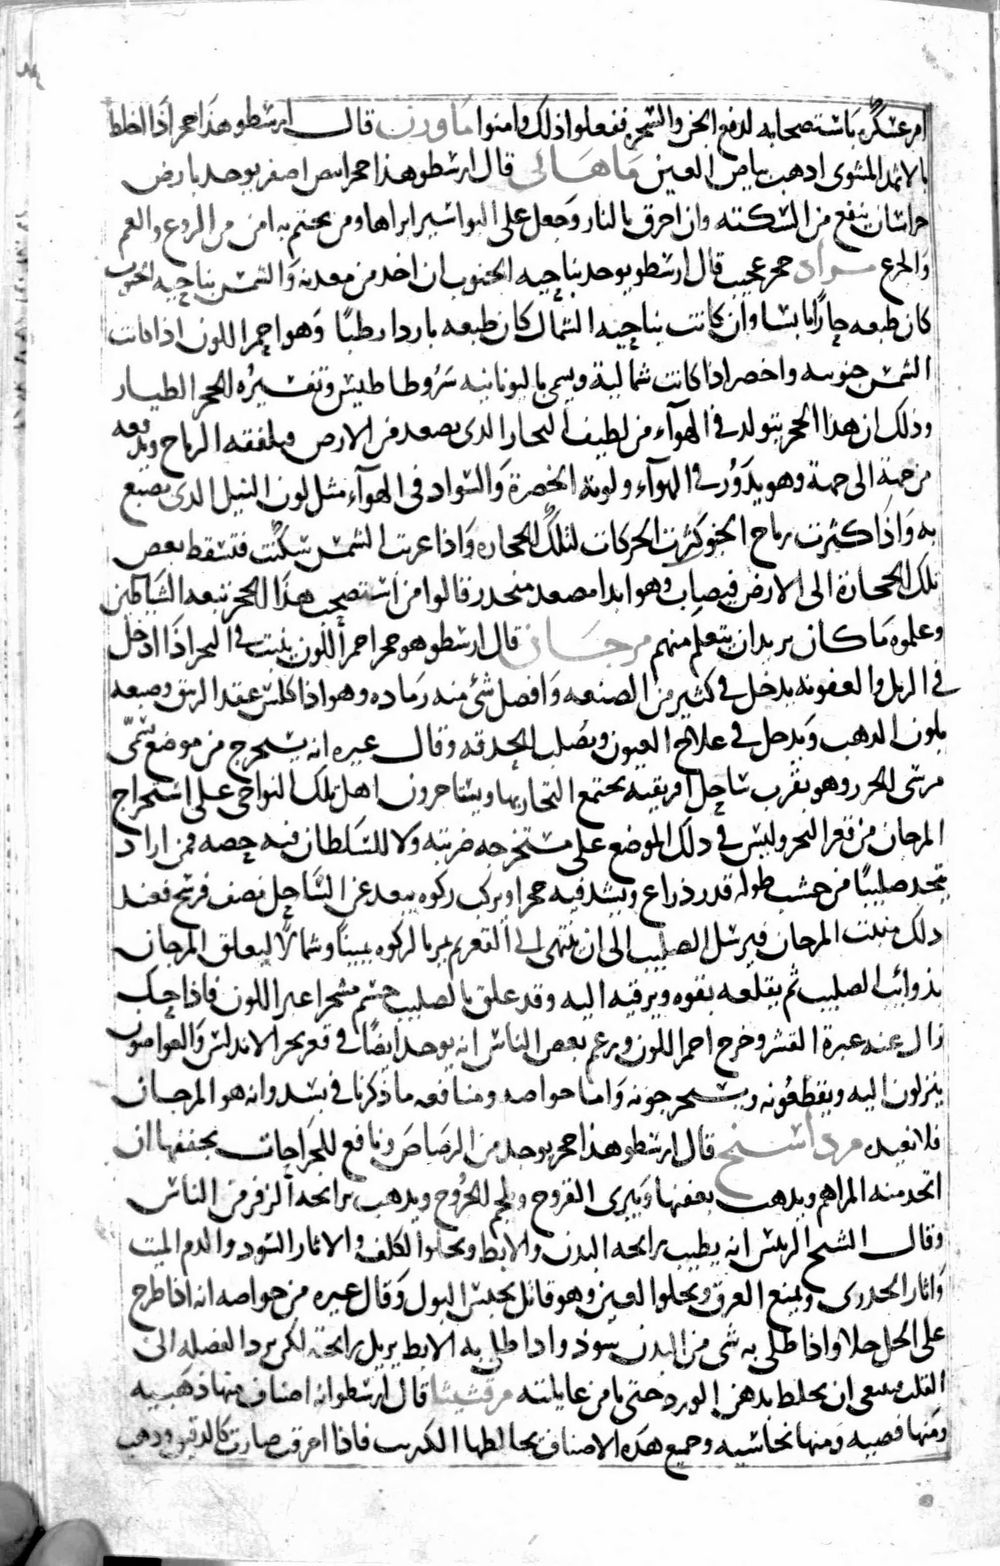 امر عسكره باستصحابه لدفع الجن والسحر ففعلوا ذلك وامنوا ماورن قال ارسطو هذا حجر اذا الخلط
بالاثمد المشوى اذهب بياض العين ماهانى قال ارسطو هذا حجر ابيض اصفر يوجد بارض
خراسان ينفع من السكته وان احرق بالنار وجعل على البواسير ابراها ومن يختم به امن من الروع والغم
والجزع مراد حجر عجيب قال ارسطو يوجد بناحيه الجنوب ان اخذ من معدنه والشمس بناحيه الجنوب
كان طبعه حارا يابسا وان كانت بناحيه الشمال كان طبعه باردا رطبا وهو احمر اللون اذا كانت
الشمس جنوبيه واخضر اذا كانت شمالية ويسمى باليونانيه سروطاطيس وتفسيره الحجر الطيار
وذلك ان هذا الحجر يتولد فى الهوآء من لطيف البخار الذى يصعد من الارض فيلفقه الرياح ويدفعه
من جهة الى جهة وهو يدور فى الهوآء ولونه الخضرة والسواد فى الهوآء مثل لون النيل الذى يصبغ
به واذا كثرت رياح الجو كثرت الحركات لتلك الحجاره واذا غربت الشمس سكنت فتسقط بعض
تلك الحجارة الى الارض فيصاب وهو ابدا مصعد منحدر قالوا من استصحب هذا الحجر تتبعه الشياطين
وعلموه ما كان يريد ان يتعلم منهم مرجان قال ارسطو هو حجر احمر اللون ينبت فى البحر اذا ادخل
فى الزبل والعفونه يدخل فى كثير من الصنعه وافضل شئ منه رماده وهو اذا كلس عقد الزيبق وصبغه
بلون الذهب ويدخل فى علاج العيون ويصلب الحدقه وقال غيره انه يستخرج من موضع يسمى
مرسى الخرز وهو بقرب ساحل افريقيه يجتمع التجار بها ويستاجرون اهل تلك النواحى على استخراج
المرجان من قعر البحر وليس فى ذلك الموضع على مستخرجه ضريبه ولا للسلطان فيه حصه فمن اراد
يتخذ صليبا من خشب طوله قدر ذراع ويشد فيه حجرا ويركب ركوه يبعد عن الساحل نصف فرسخ فعند
ذلك منبت المرجان فيرسل الصليب الى ان ينتهى الى القعر ثم يمر بالركوه يمينا وشمالا ليعلق المرجان
بذوائب الصليب ثم يقلعه بقوه ويرقيه اليه وقد علق بالصليب جسم مشجر اغبر اللون فاذا حك
زال عنه غبرة القشر وخرج احمر اللون ويزعم بعض الناس انه يوجد ايضا فى قعر بحر الاندلس والغواصون
ينزلون اليه ويقطعونه ويستخرجونه واما خواصه ومنافعه ما ذكرنا فى بسد وانه هو المرجان
فلا نعيده مرداسنج قال ارسطو هذا حجر يوجد من الرصاص ونافع للجراحات يجففها ان
اتخذ منه المراهم ويذهب بعفنها ويبرى القروح ويلحم الجروح ويذهب برايحه الزفر من الناس
وقال الشيخ الرئيس انه يطيب رايحه البدن والابط ويجلوا الكلف والاثار السود والدم الميت
واثار الجدرى ويمنع العرق ويجلوا العين وهو قاتل يحبس البول وقال غيره من خواصه انه اذا طرح
على الخل حلا واذا طلى به شى من البدن سود واذا طلى به الابط يزيل رايحته لكن يرد الفضله الى
القلب فينبغى ان يخلط بدهن الورد حتى يامن غايلته مرقشيشا قال ارسطو انه اصناف منها ذهبيه
ومنها فضيه ومنها نحاسيه وجميع هذه الاصناف يخالطها الكبريت فاذا احرقت صارت كالدقيق وذهب